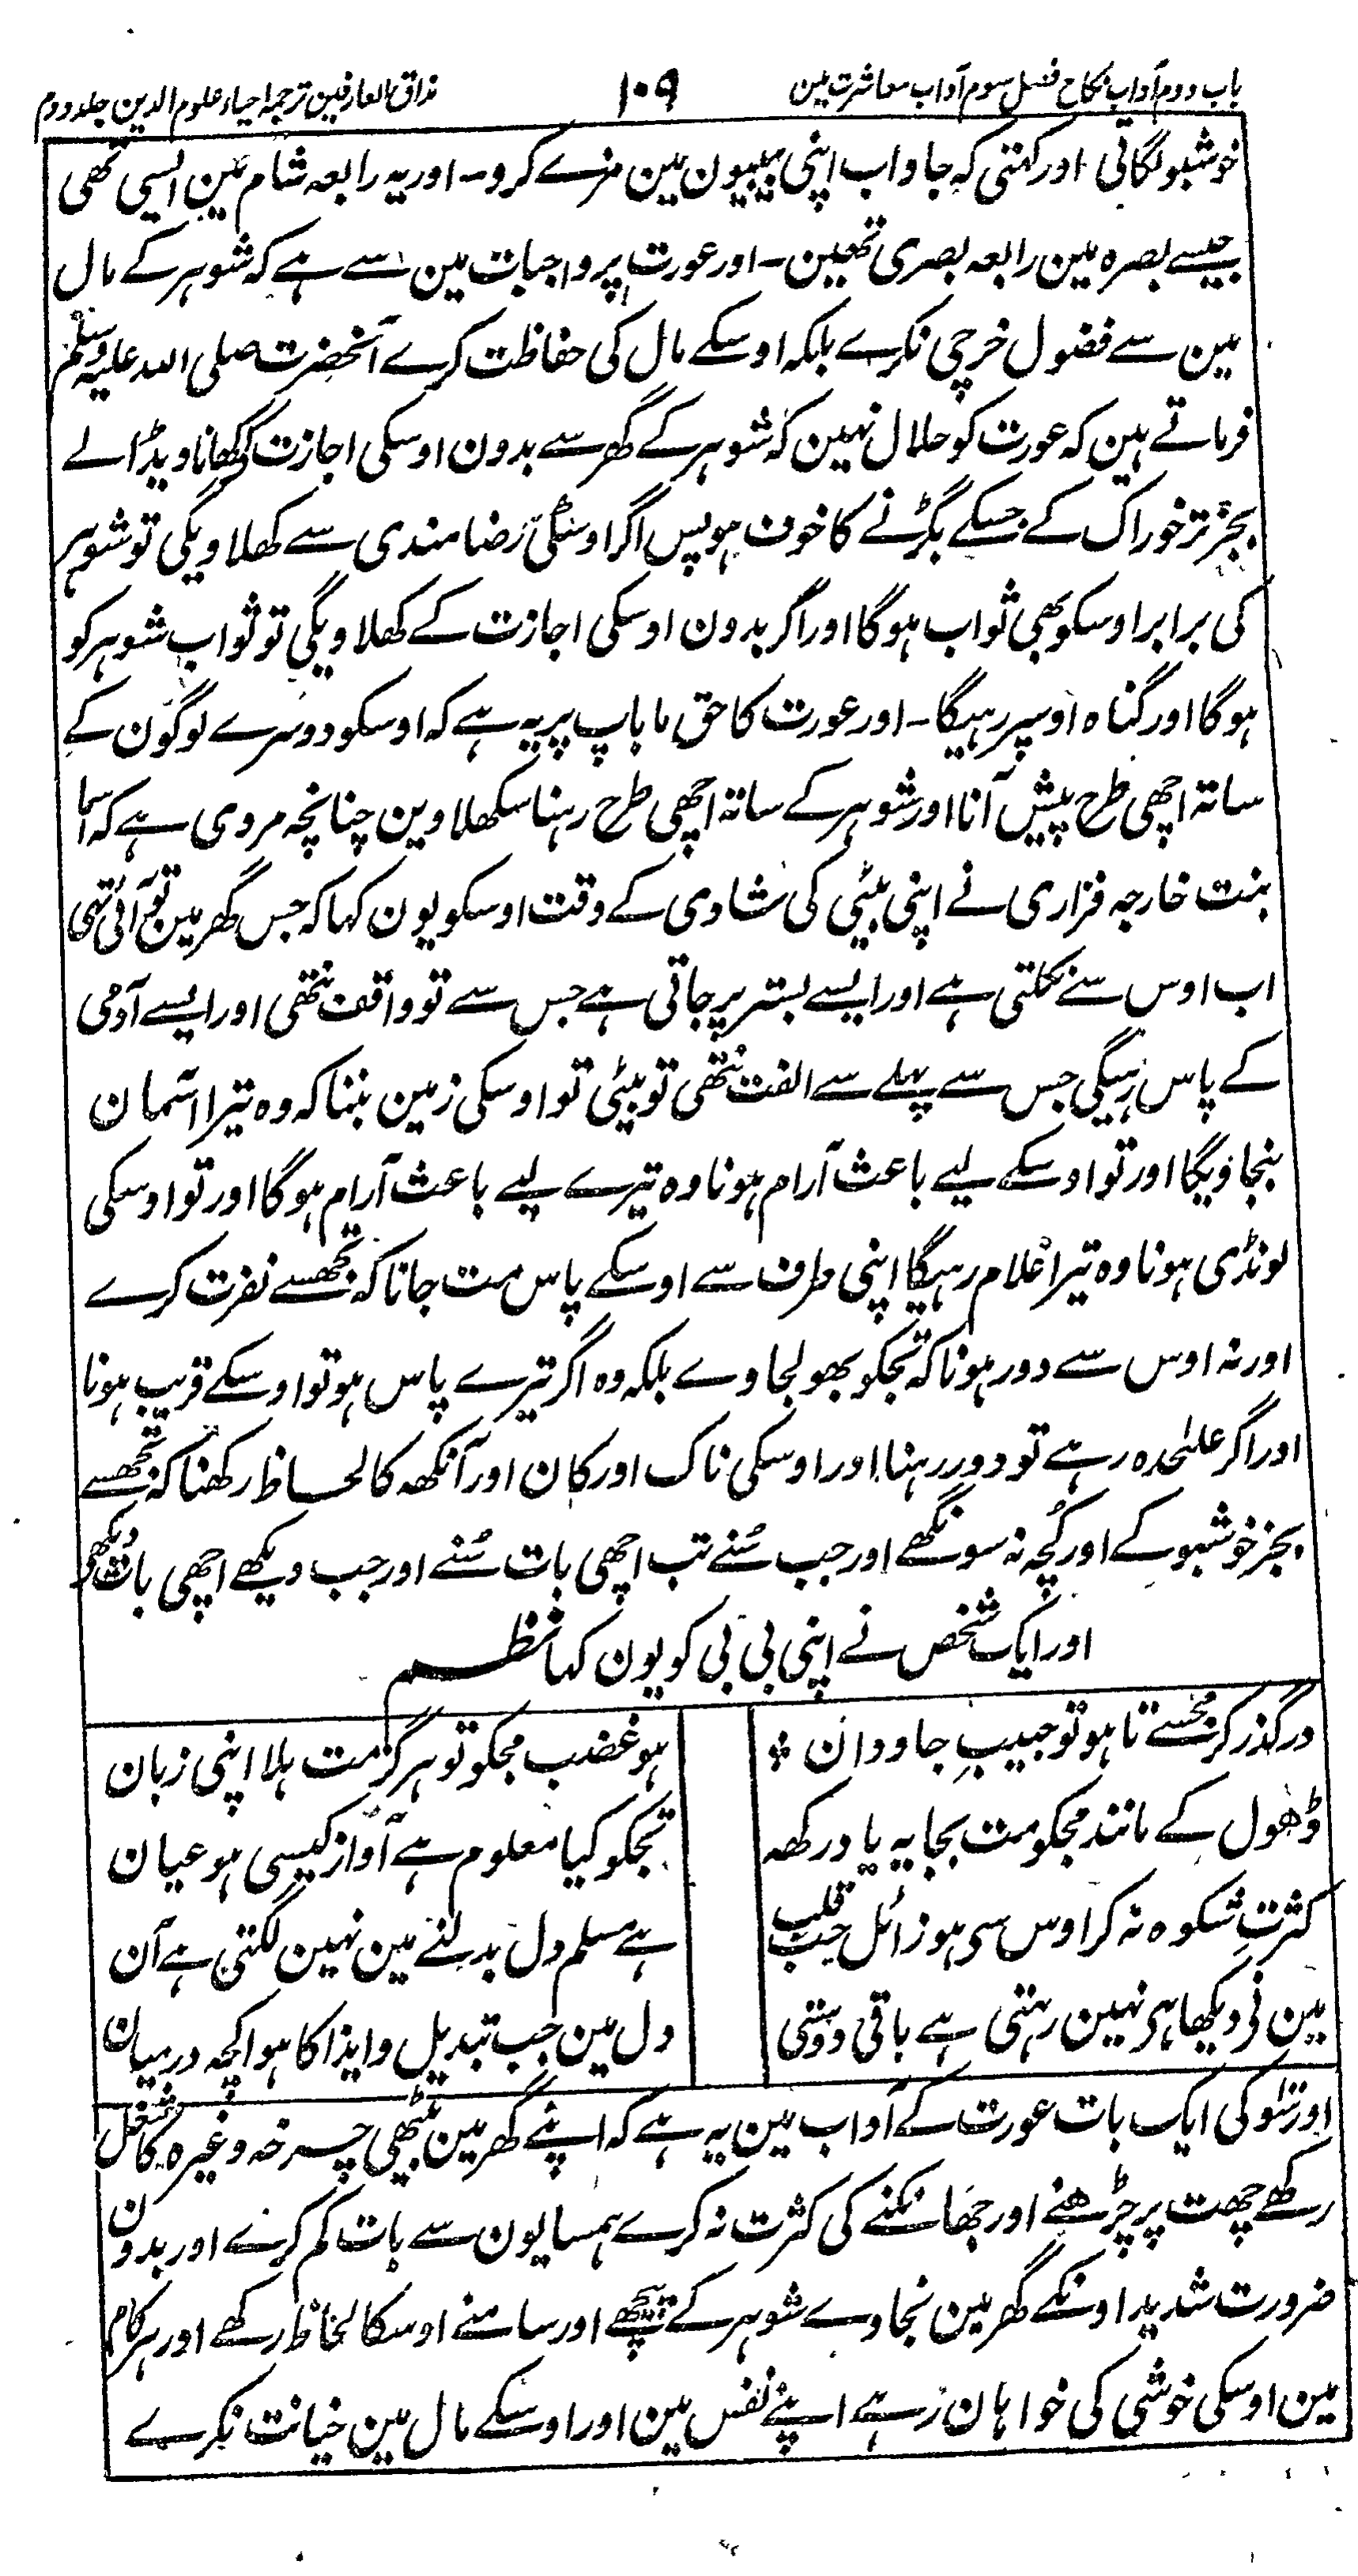 باب دوم آداب نکاح فصل سوم آداب معاشرت مین
۱۰۹
مذاق العارفین ترجمہ احیاء علوم الدین جلد دوم
خوشبو لگاتی اور کہتی کہ جاو اب اپنی بیبیون مین مزے کرو۔ اور یہ رابعہ شام مین ایسی تھی
جیسے بصرہ مین رابعہ بصری تھین۔ اور عورت پر واجبات مین سے ہے کہ شوہر کے مال
مین سے فضول خرچی نکرے بلکہ اوسکے مال کی حفاظت کرے آنحضرت صلی اللہ علیہ وسلم
فرماتے ہین کہ عورت کو حلال نہین کہ شوہر کے گھر سے بدون اوسکی اجازت کھانا دیڈالے
بجز تر خوراک کے جسکے بگڑنے کا خوف ہو پس اگر اوسکی رضامندی سے کھلاویگی تو شوہر
کی برابر اوسکو بھی ثواب ہوگا اور اگر بدون اوسکی اجازت کے کھلاویگی تو ثواب شوہر کو
ہوگا اور گناہ اوسپر رہیگا۔ اور عورت کا حق ماباپ پر یہ ہے کہ اوسکو دوسرے لوگون کے
ساتہ اچھی طرح پیش آنا اور شوہر کے ساتہ اچھی طرح رہنا سکھلاوین چنانچہ مروی ہے کہ اسما
بنت خارجہ فزاری نے اپنی بیٹی کی شادی کے وقت اوسکو یون کہا کہ جس گھر مین تو آئی تھی
اب اوس سے نکلتی ہے اور ایسے بستر پر جاتی ہے جس سے تو واقف نتھی اور ایسے آدمی
کے پاس رہیگی جس سے پہلے سے الفت نتھی تو بیٹی تو اوسکی زمین بننا کہ وہ تیرا آسمان
بنجاویگا اور تو اوسکے لیے باعث آرام ہونا وہ تیرے لیے باعث آرام ہوگا اور تو اوسکی
لونڈی ہونا وہ تیرا غلام رہیگا اپنی طرف سے اوسکے پاس مت جانا کہ تجھسے نفرت کرے
اور نہ اوس سے دور ہونا کہ تجکو بھولجاوے بلکہ وہ اگر تیرے پاس ہو تو اوسکے قریب ہونا
اور اگر علٰحدہ رہے تو دور رہنا اور اوسکی ناک اور کان اور آنکھہ کا لحاظ رکھنا کہ تجھسے
بجز خوشبو کے اور کچہ نہ سونگھے اور جب سُنے تب اچھی بات سُنے اور جب دیکھے اچھی بات دیکھے
اور ایک شخص نے اپنی بی بی کو یون کہا نظم
درگذر کر مجھسے تا ہو تو حبیبِ جاودان ٭ ہو غضب مجکو تو ہرگز مت ہلا اپنی زبان
ڈھول کے مانند مجکو مت بجا یہ یاد رکھہ تجکو کیا معلوم ہے آواز کیسی ہو عیان
کثرتِ شکوہ نہ کر اوس سی ہو زائل حب قلب ہے مسلم دل بدلنے مین نہین لگتی ہے آن
مین نی دیکھا ہی نہین رہتی ہے باقی دوستی دل مین جب تبدیل و ایذا کا ہو اکچہ درمیان
اور سَو کی ایک بات عورت کے آداب مین یہ ہے کہ اپنے گھر مین بیٹھی چرخہ وغیرہ کا شغل
رکھے چھت پر چڑھنے اور جھانکنے کی کثرت نہ کرے ہمسایون سے بات کم کرے اور بدون
ضرورت شدید اونکے گھر مین نجاوے شوہر کے پیچھے اور سامنے اوسکا لحاظ رکھے اور ہر کام
مین اوسکی خوشی کی خواہان رہے اپنے نفس مین اور اوسکے مال مین خیانت نکرے